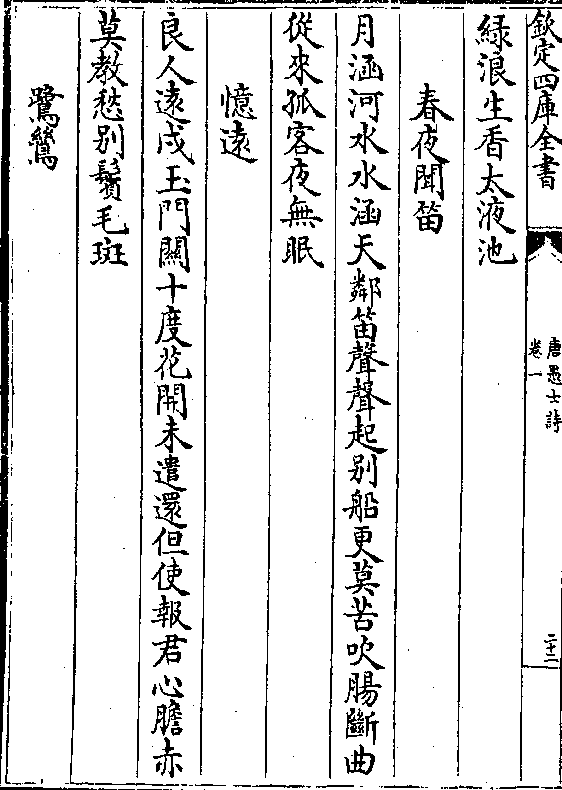 欽定四庫全書
唐愚士詩
卷一
二十二
綠浪生香太液池
春夜聞笛
月涵河水水涵天鄰笛聲聲起别船更莫苦吹腸斷曲
從來孤客夜無眠
憶遠
良人遠戍玉門關十度花開未遣還但使報君心膽赤
莫教愁别鬢毛斑
鷺鷥